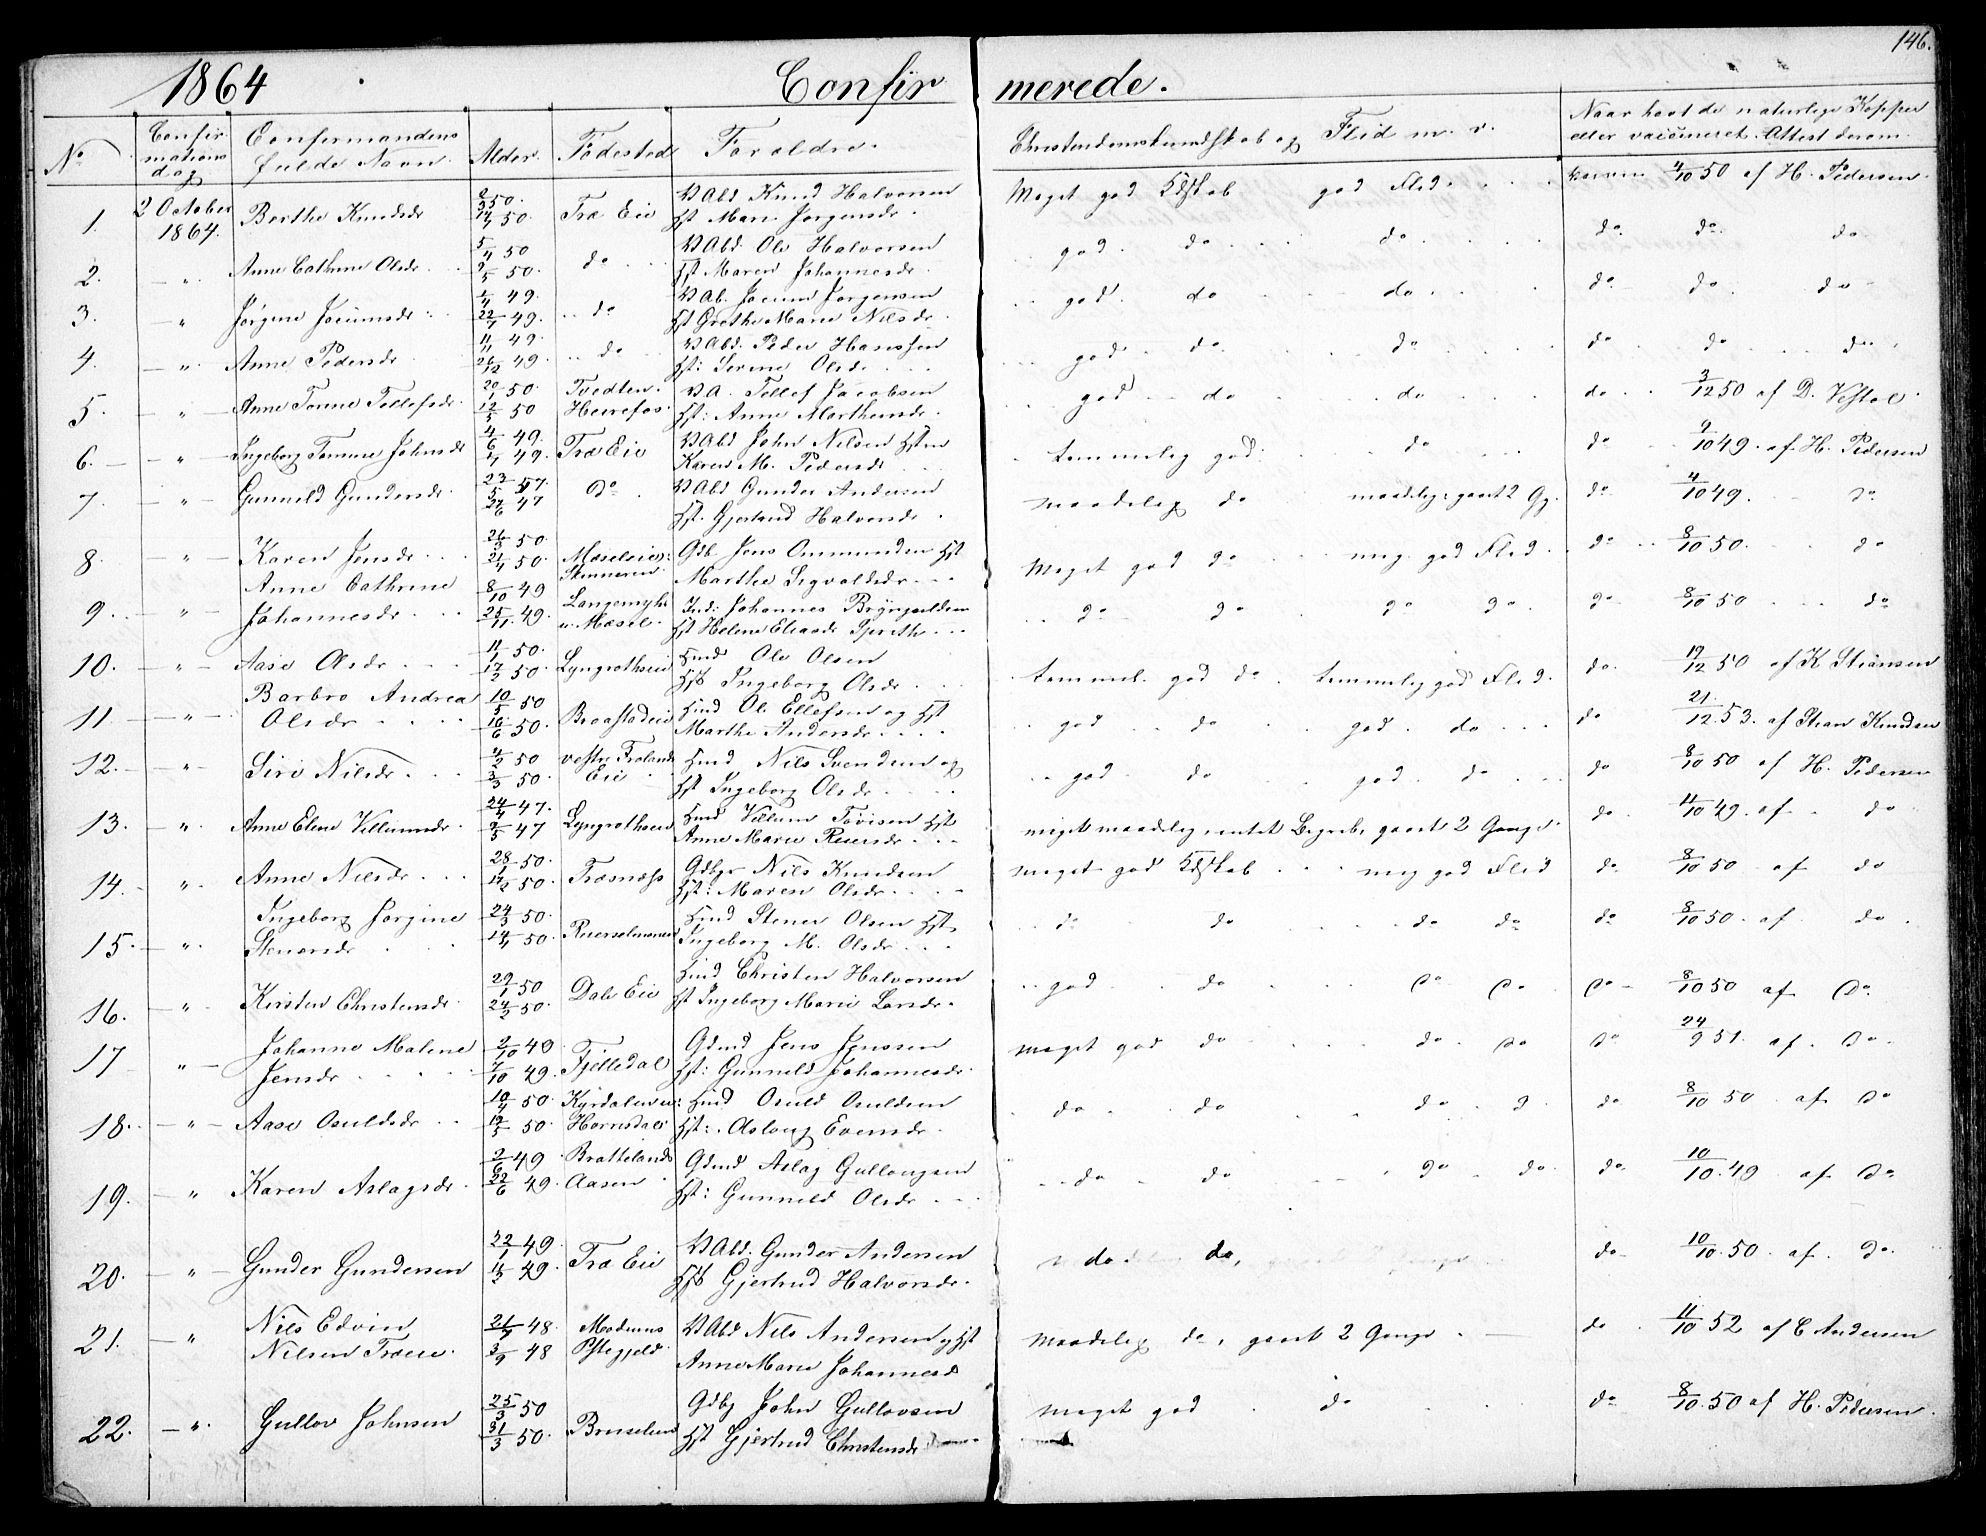 146.
1864 Confirmerede.
No. Confirmations dag Confirmandens fulde Navn. Alder. Fødested Forældre. Christendomskundskab og Flid m. v. Naar havt de naturlige Kopper eller vaccineret. Attest derom.
1. 2 October 1864. Berthe Knudsdr 14/4 50. Træ Eie V Abd Knud Halvorsen Hst Mari Jørgensdr. Meget god Kdskab god Flid 4/10 50 af H. Pedersen.
2. " Anne Cathrine Olsdr 5/4 50 9/5 50. do V Abd. Ole Halvorsen Hst Maren Johannesdr. god. do do do. do. do
3. " Jørgine Jocumsdr 49. 22/7 49. do V Ab. Jocum Jørgensen Hst Grethe Marie Nilsdr. god. do do do do. do
4. " Anne Pedersdr 11/11 49. 26/12 49. do V Abd. Peder Hansen Hst: Serine Olsdr. god do do do do do
5. " Anne Tomine Tellefsdr. 20/1 50. 12/5 50 Tvedten. Heirefos V. A. Tellef Jacobsen Hst: Anne Marthensdr. god do do do 3/12 50 af D. Vestøl.
6. " Ingeborg Tomine Johnsdr 4/6 49. 49. Træ Eie V Abd John Nilsen Hstr Karen M. Pedersdr temmelig god. do do 9/10 49. af H. Pedersen
7. " Gunnild Gundersdr. 23/5 47. 27/6 47 do V Abd Gunder Andersen Hst. Gjertrud Halvorsdr. maadelig do maadelig, gaaet 2 Gg. do 4/10 49. do
8. " Karen Jensdr. 26/3 50. 21/4 50. Mæseleie: Gdb Jens Ommundsen Hst Marthe Sigvaldsdr. Meget god do meg. god Flid. do 8/10 50. do
9. " Anne Cathrine Johannesdr. 8/10 49 25/11 49. Langemyhr u. Mæsel. Ind: Johannes Brynjulfsen Hst Helene Eliasdr do do do do. do 8/10 50 do
10. " Aase Olsdr. 11/1 50. 17/3 50. Lyngrothseie Hmd Ole Olsen Hst Ingeborg Olsdr. temmel. god do. temmelig god Flid. do. 17/12 50 af K Steansen
11 " Barbro Andrea Olsdr 10/5 50 16/6 50. Braastadeie Hmd Ole Ellefsen og Hst Marthe Andersdr. god do god. do do 21/12 53. af Stean Knudsen
12. " Siri Nilsdr. 4/2 50 3/3 50. vestre Froland Eie Hmd Nils Svendsen og Hst Ingeborg Olsdr. god do god. do do 8/10 50 af H. Pedersen
13. " Anne Elene Villumsdr. 24/4 47. 9/5 47 Lyngrothseie Hmd Villum Tovisen Hst Anne Marie Reiersdr. meget maadelig, sentet Begreb, gaaet 2 Gange do 4/10 49. af do
14. " Anne Nilsdr. 28/1 50. 17/2 50. Træsnæss Gdbgr Nils Knudsen Hst: Maren Olsdr. meget god Kdskab meg god Flid do 8/10 50 af do
15. " Ingeborg Jørgine Stenersdr 24/3 50. 14/4 50. Hmd Stener Olsen Hst Ingeborg M. Olsdr. do do do do do 8/10 50. af do.
16. " Kirsten Christensdr. 29/1 50 24/2 50. Dale Eie Hmd Christen Halvorsen Hst Ingeborg Marie Larsdr. god do do do. do 8/10 50 af do.
17 " Johanne Malene Jensdr 2/10 49 7/10 49. Fjelledal Gdmd Jens Jenssen Hst: Gunnild Johannesdr. meget god do do. do do 24/9 51. af. do.
18. " Aase Osuldsdr. 10/4 50 50. Hornsdal Hmd Osuld Osuldsen Hst: Aslaug Evensdr. do do do do 8/10 50 af do
19. " Karen Aslagsdr. 2/6 49 22/6 49. Brattelands Aasen Gdmd Aslag Gullougsen Hst: Gunnild Olsdr. do. do do. do. do. 10/10. 49 af do
20. " Gunder Gundersen 22/1 49. 11/3 49. Træ Eie V Abd. Gunder Andersen Hst Gjertrud Halvorsdr. do. do, do 10/10. 50. af. do.
21. " Nils Edvin Nilsen Træeie. 21/7 48. 3/9 48 Modums Pstegjeld. V Abd Nils Andersen og Hst Anne Marie Johannesd maadelig do, gaaet 2 Gange. do 11/10 52 af C Andersen
22. " Gullov Johnsen 25/3 50 31/3 50. Gdbg John Gullovsen Hst Gjertrud Christensdr. meget god. do do 8/10. 50 af H. Pedersen.